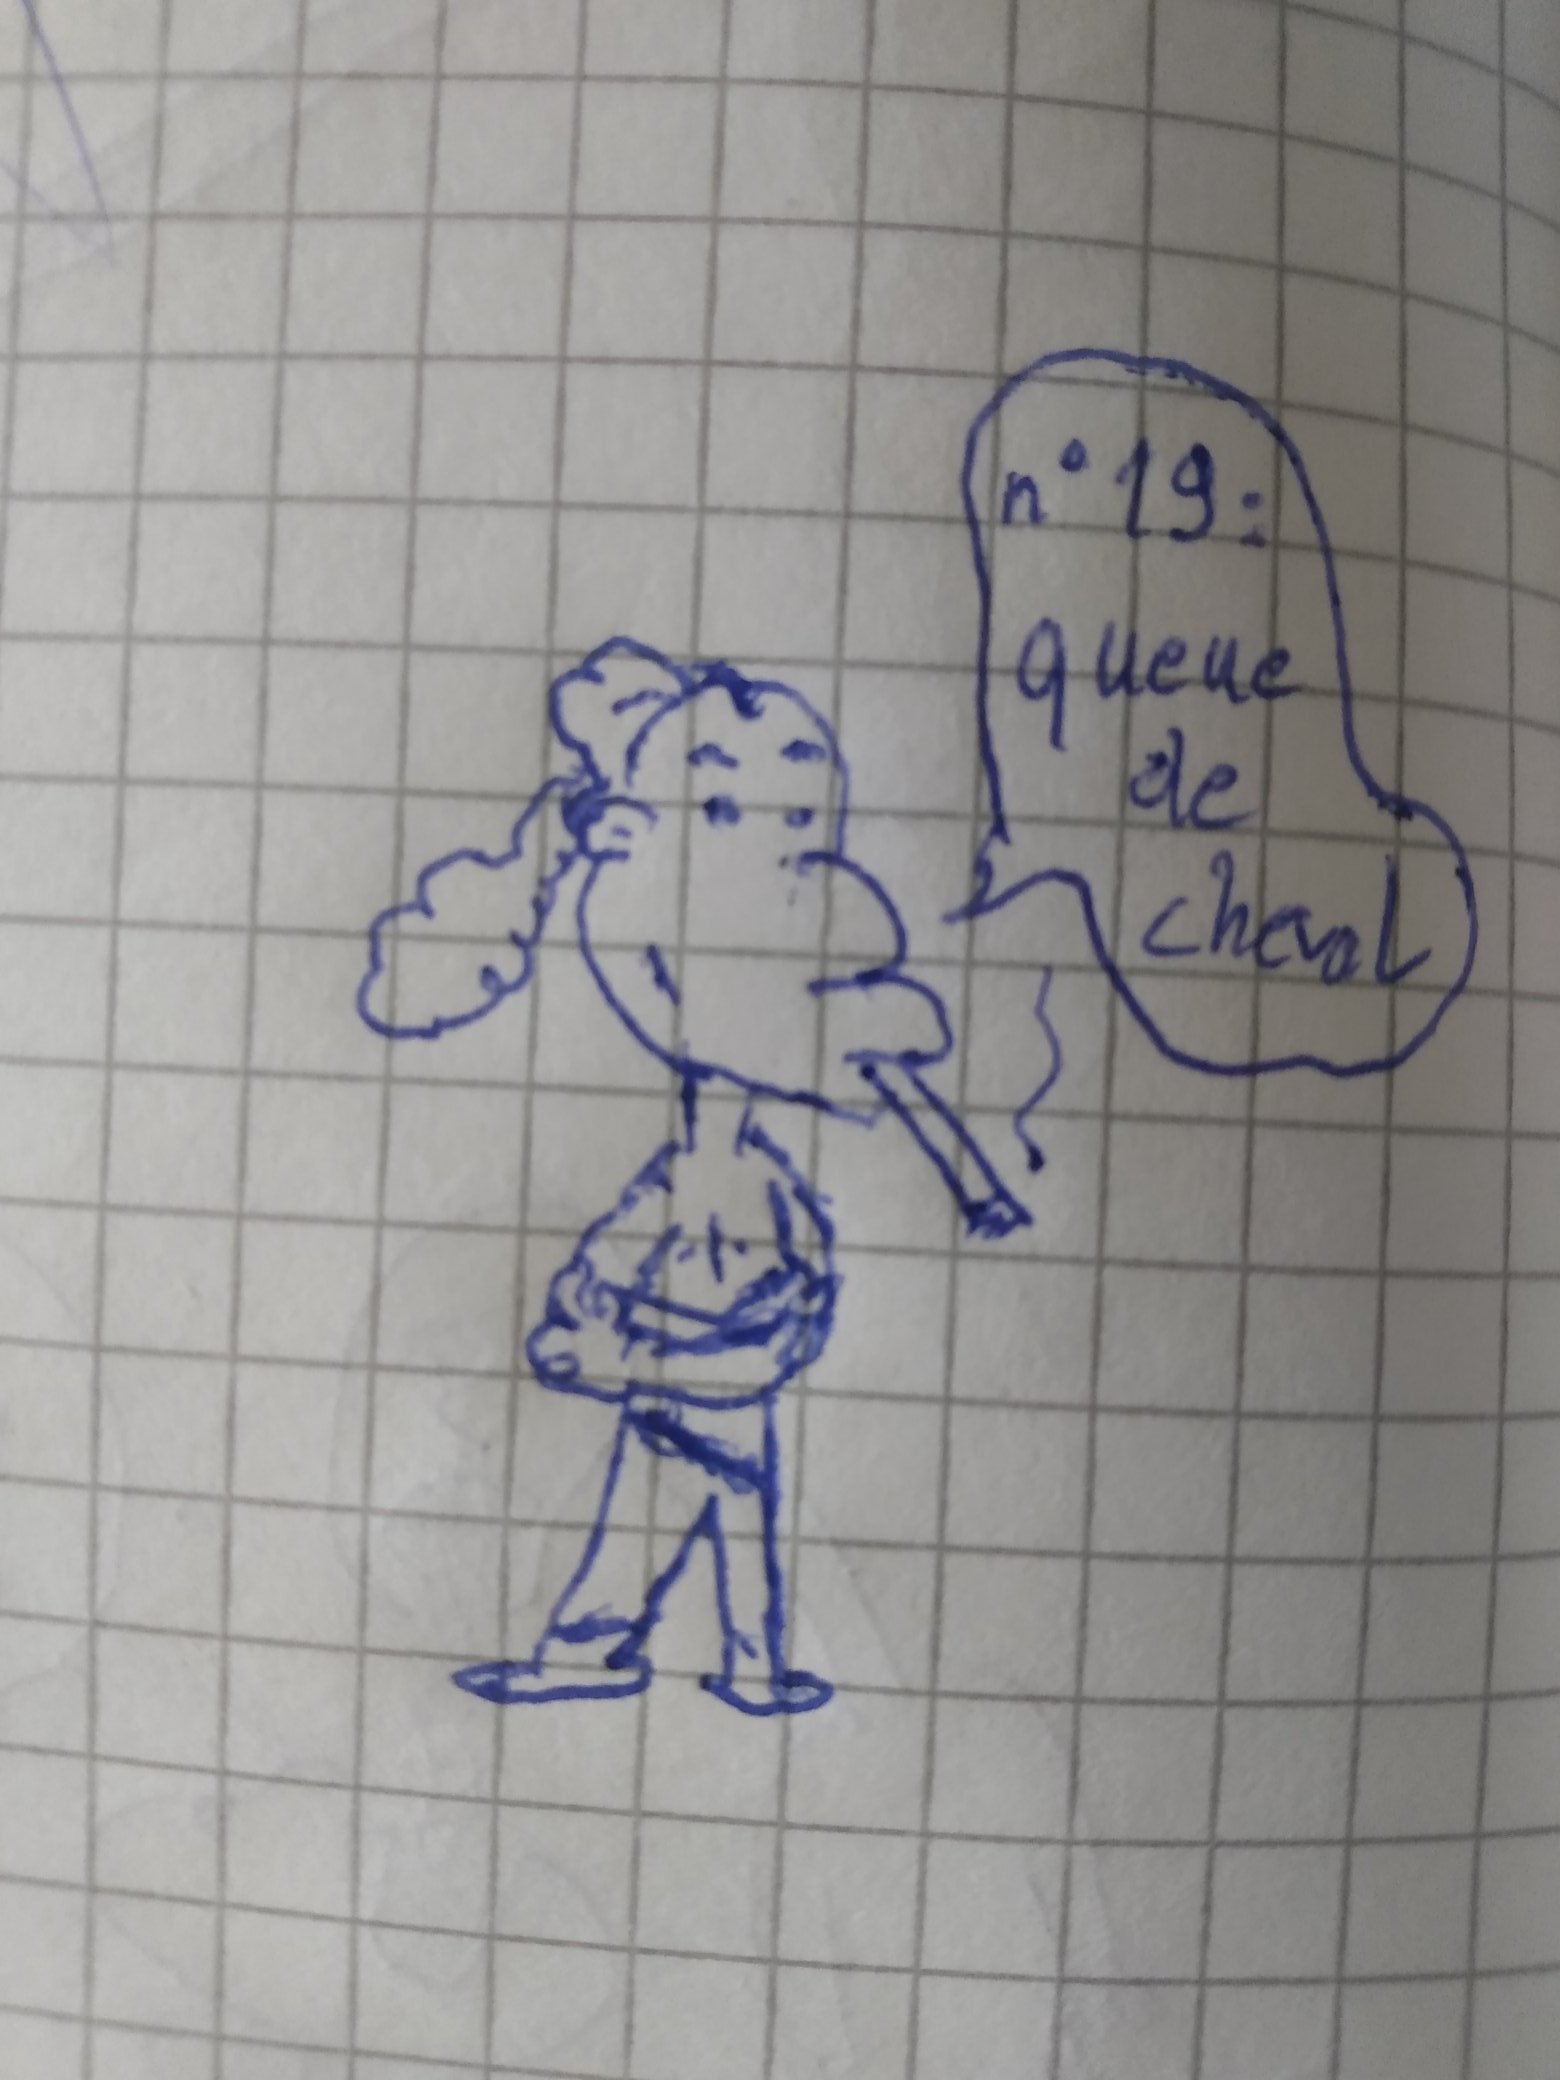 n°19:
queue
de
cheval